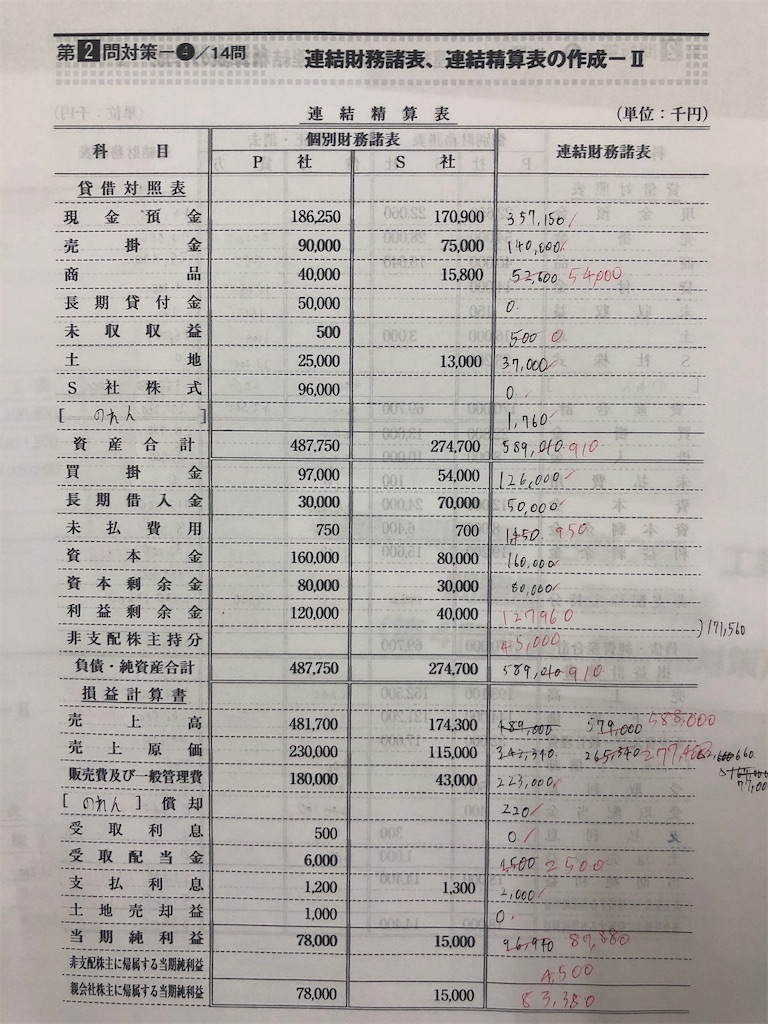 第2問対策－❹／14問 連結財務諸表、連結精算表の作成－Ⅱ
連結精算表 (単位：千円)
科目 個別財務諸表 連結財務諸表
P社 S社
貸借対照表
現金預金 186,250 170,900 357,150
売掛金 90,000 75,000 140,000
商品 40,000 15,800 52,600 54,000
長期貸付金 50,000 0
未収収益 500 500 0
土地 25,000 13,000 37,000
S社株式 96,000 0
[のれん] 1,760
資産合計 487,750 274,700 589,010 910
買掛金 97,000 54,000 126,000
長期借入金 30,000 70,000 50,000
未払費用 750 700 1450 950
資本金 160,000 80,000 160,000
資本剰余金 80,000 30,000 80,000
利益剰余金 120,000 40,000 127960
非支配株主持分 45,000 )171,560
負債・純資産合計 487,750 274,700 589,010 910
損益計算書
売上高 481,700 174,300 489,000 579,000 588,000
売上原価 230,000 115,000 265,340
販売費及び一般管理費 180,000 43,000 223,000
[のれん]償却 220
受取利息 500 0
受取配当金 6,000 1,500 2500
支払利息 1,200 1,300 2,000
土地売却益 1,000 0
当期純利益 78,000 15,000 96,940 87,880
非支配株主に帰属する当期純利益 4,500
親会社株主に帰属する当期純利益 78,000 15,000 83,380